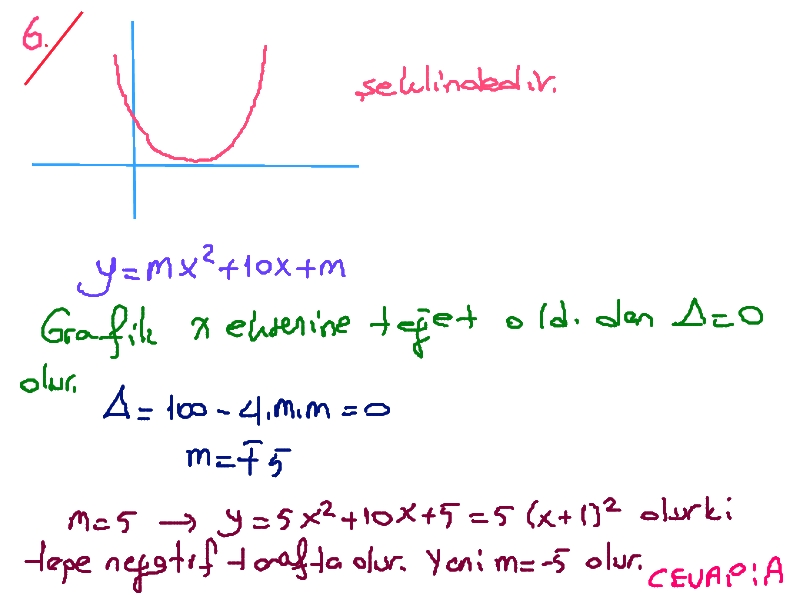 6.
şeklindedir.
y=mx²+10x+m
Grafik x eksenine teğet old. dan Δ=0
olur.
Δ=100-4.m.m=0
m=∓5
m=5 → y=5x²+10x+5=5(x+1)² olurki
tepe negatif tarafta olur. Yani m=-5 olur.
CEVAP:A